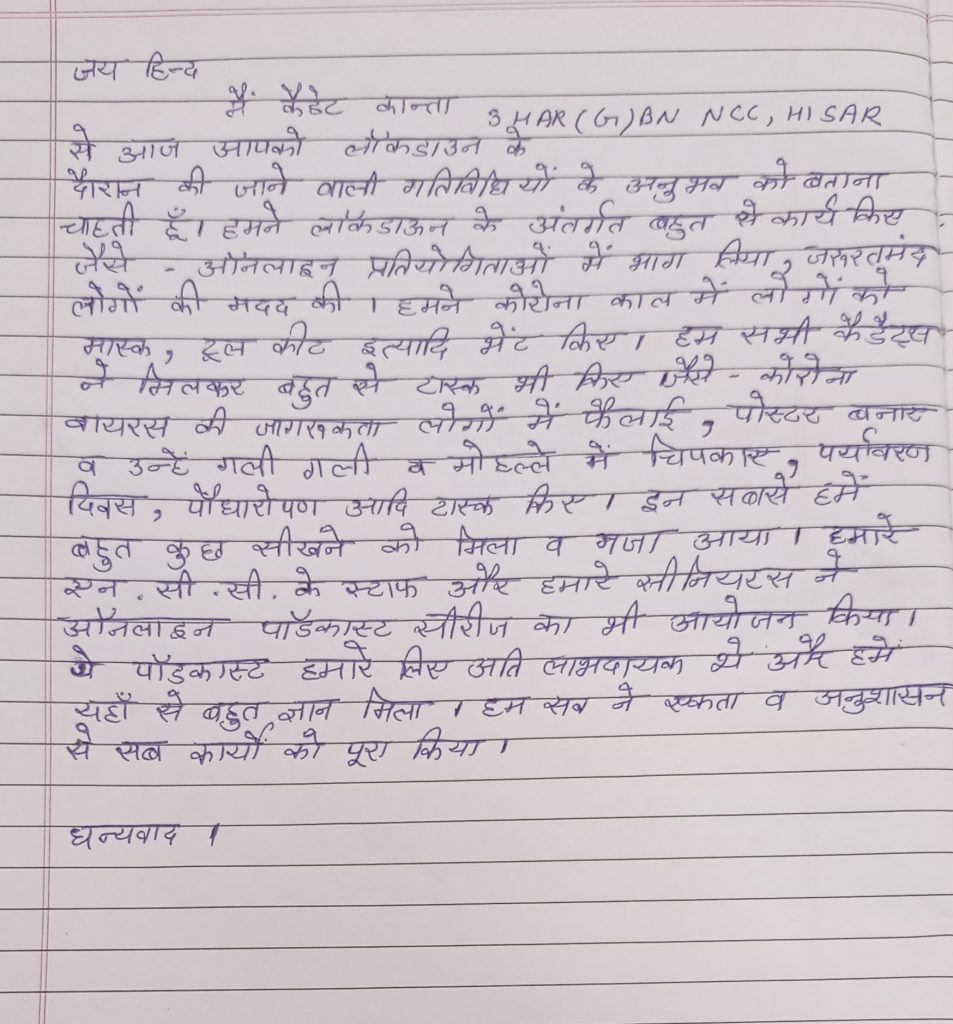 जय हिन्द
मैं कैडेट कान्ता 3 HAR (G) BN NCC, HISAR
से आज आपको लॉकडाउन के
दौरान की जाने वाली गतिविधियों के अनुभव को बताना
चाहती हूँ। हमने लॉकडाऊन के अंतर्गत बहुत से कार्य किए
जैसे - ऑनलाइन प्रतियोगिताओं में भाग लिया, जरूरतमंद
लोगों की मदद की । हमने कोरोना काल में लोगों को
मास्क, टूल कीट इत्यादि भेंट किए। हम सभी कैडैट्स
ने मिलकर बहुत से टास्क भी किए जैसे - कोरोना
वायरस की जागरुकता लोगों में फैलाई, पोस्टर बनाए
व उन्हें गली गली व मोहल्ले में चिपकाए, पर्यावरण
दिवस, पौधारोपण आदि टास्क किए । इन सबसे हमें
बहुत कुछ सीखने को मिला व मजा आया । हमारे
एन . सी . सी. के स्टाफ और हमारे सीनियरस ने
ऑनलाइन पॉडकास्ट सीरीज का भी आयोजन किया।
ये पॉडकास्ट हमारे लिए अति लाभदायक थे और हमें
यहाँ से बहुत ज्ञान मिला । हम सब ने एकता व अनुशासन
से सब कार्यों को पूरा किया ।
धन्यवाद ।